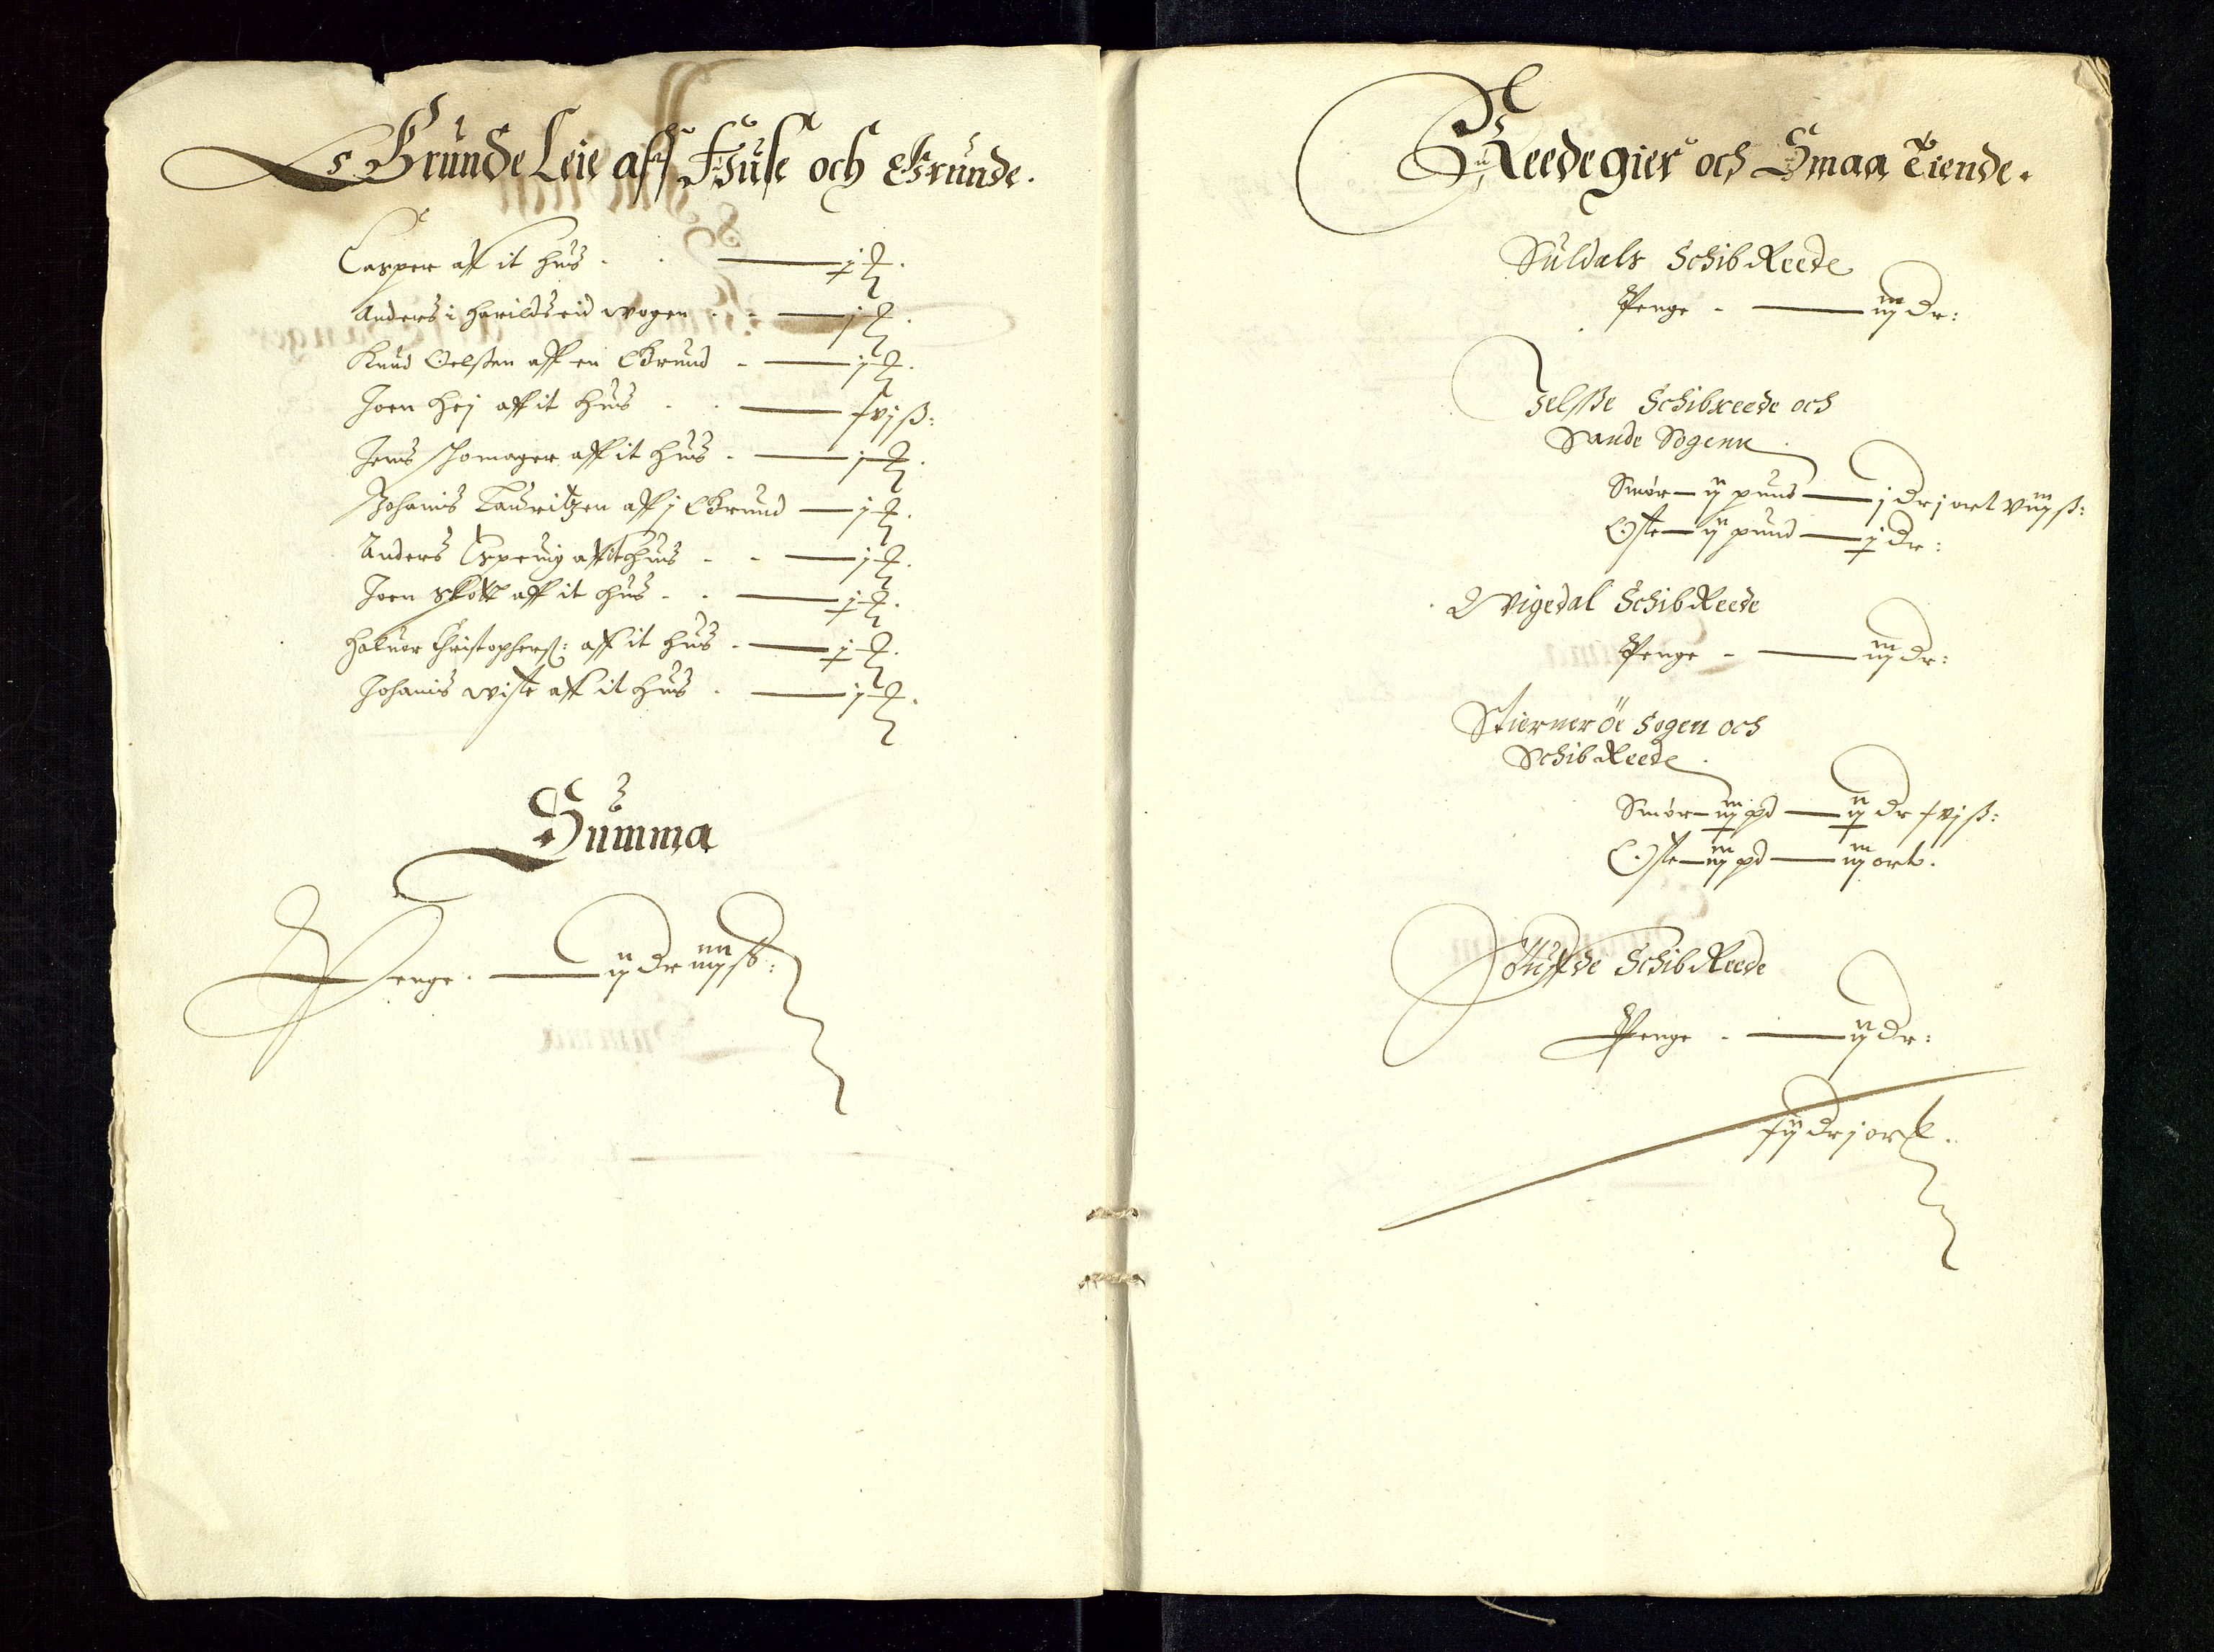 Grunde Leie aff Huse och Grunde.
Casper aff it Huus . . — j
Anders i Harildseid wogen . - — j
Knud Oelssen aff en Grund - — j
Joen Hej aff it Huus . . — xvj ß:
Jens Skomager aff it Huus - — j
Johanis Lauritzen aff j Grund — j
Anders aff it Huus - - — j
Joen Skott aff it Huus . . — j
Haluor Christophers: aff it Huus - — j
Johanis wiste aff it Huus . — j
Summa
Penge . — ij Dr iiij ß:
Reedegier och Smaa Tiende.
Suldals SchibReede
Penge - — iij Dr:
Jelsße Schibreede och
Sande Sogenn
Smør — ij pund — j Dr j ort viij ß:
Oste — ij pund — j Dr:
Wigedal SchibReede
Penge - — iij Dr:
Stierneröe Sogen och
SchibReede
Smør — iij pd — ij Dr xvj ß:
Oste — iij pd — iij ort.
SchibReede
Penge - — ij Dr:
xij Dr j ort.